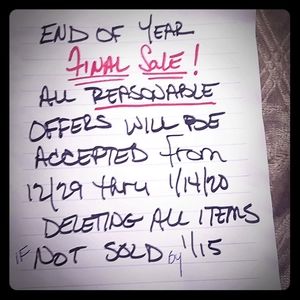 END OF YEAR
FINAL SALE!
ALL REASONABLE
OFFERS WILL BE
ACCEPTED from
12/29 thru 1/14/20
DELETING ALL ITEMS
IF NOT SOLD by 1/15